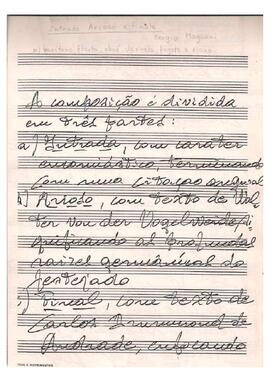 Intrada Arioso e Finale
Sergio Magnani
p/ barítono, flauta, oboé, clarineta, fagote e piano
A composição é dividida
em três partes:
a) Intrada, com caráter
encomiástico terminando
com uma citação
b) Arioso, com texto de Wal-
ter von der Vogelweide, si-
gnificando as profundas
raízes germânicas do
festejado
c) Final, com texto de
Carlos Drummond de
Andrade, enfocando